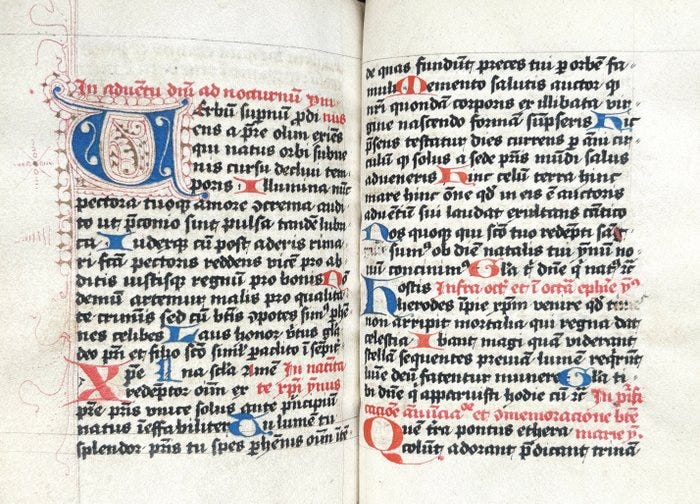 In adventu dni ad nocturnu ymnus
Verbū supnū ꝓdi
ens a pre olim exiens
qui natus orbi subue
nis cursu decliui tem
poris Illumina nūc
pectora tuoq amore ꝯcrema audi
to ut pconio sint pulsa tandē lubri
ca Iudexq cū post aderis rima
ri fcā pectoris reddens vicē pro ab
ditis iustisq regnū pro bonis Nō
demū artemur malis pro qualita
te criminis sed cū btis ꝯpotes simꝰ phē
nes celibes Laus honor virtus glā
deo pri et filio scō simul paclito ī sempit
Xpe In scla Amē In natiuita
redēptor oīm ex te xpi ymnus
pre pris vnice solus ante pncipiū
natus ineffabiliter Tu lumē tu
splendor pris tu spes phēnis oīm
de quas fundūt preces tui p orbē fa
muli Memento salutis auctor q
nri quondā corporis ex illibata vir
gine nascendo formā sūpseris Hic
psens testatur dies currens p āni cir
culū q solus a sede pris mūdi salus
adueneris Hunc celū terra hunc
mare hunc ōne qd in eis ē auctorē
aduētus tui laudat exultans cātico
Nos quoq qui scō tuo redēpti
sumꝰ ob diē natalis tui ymnū no
uū concinimꝰ Gla t dne q natꝰ
Hostis Infra oct et ī octa ephie yꝰ
herodes īpie xpm venire qd time
non arripit mortalia qui regna dat
celestia Ibant magi quā viderant
stellā sequentes preuiā lumē reqrūt
lumīe deū fatentur munere Gla ti
bi dne q apparuisti hodie cū In pifi
catiōe anūciacōe et ꝯmemoracione bte
Quē tra pontus ethera marie yꝰ
colūt adorant pdicant trinā